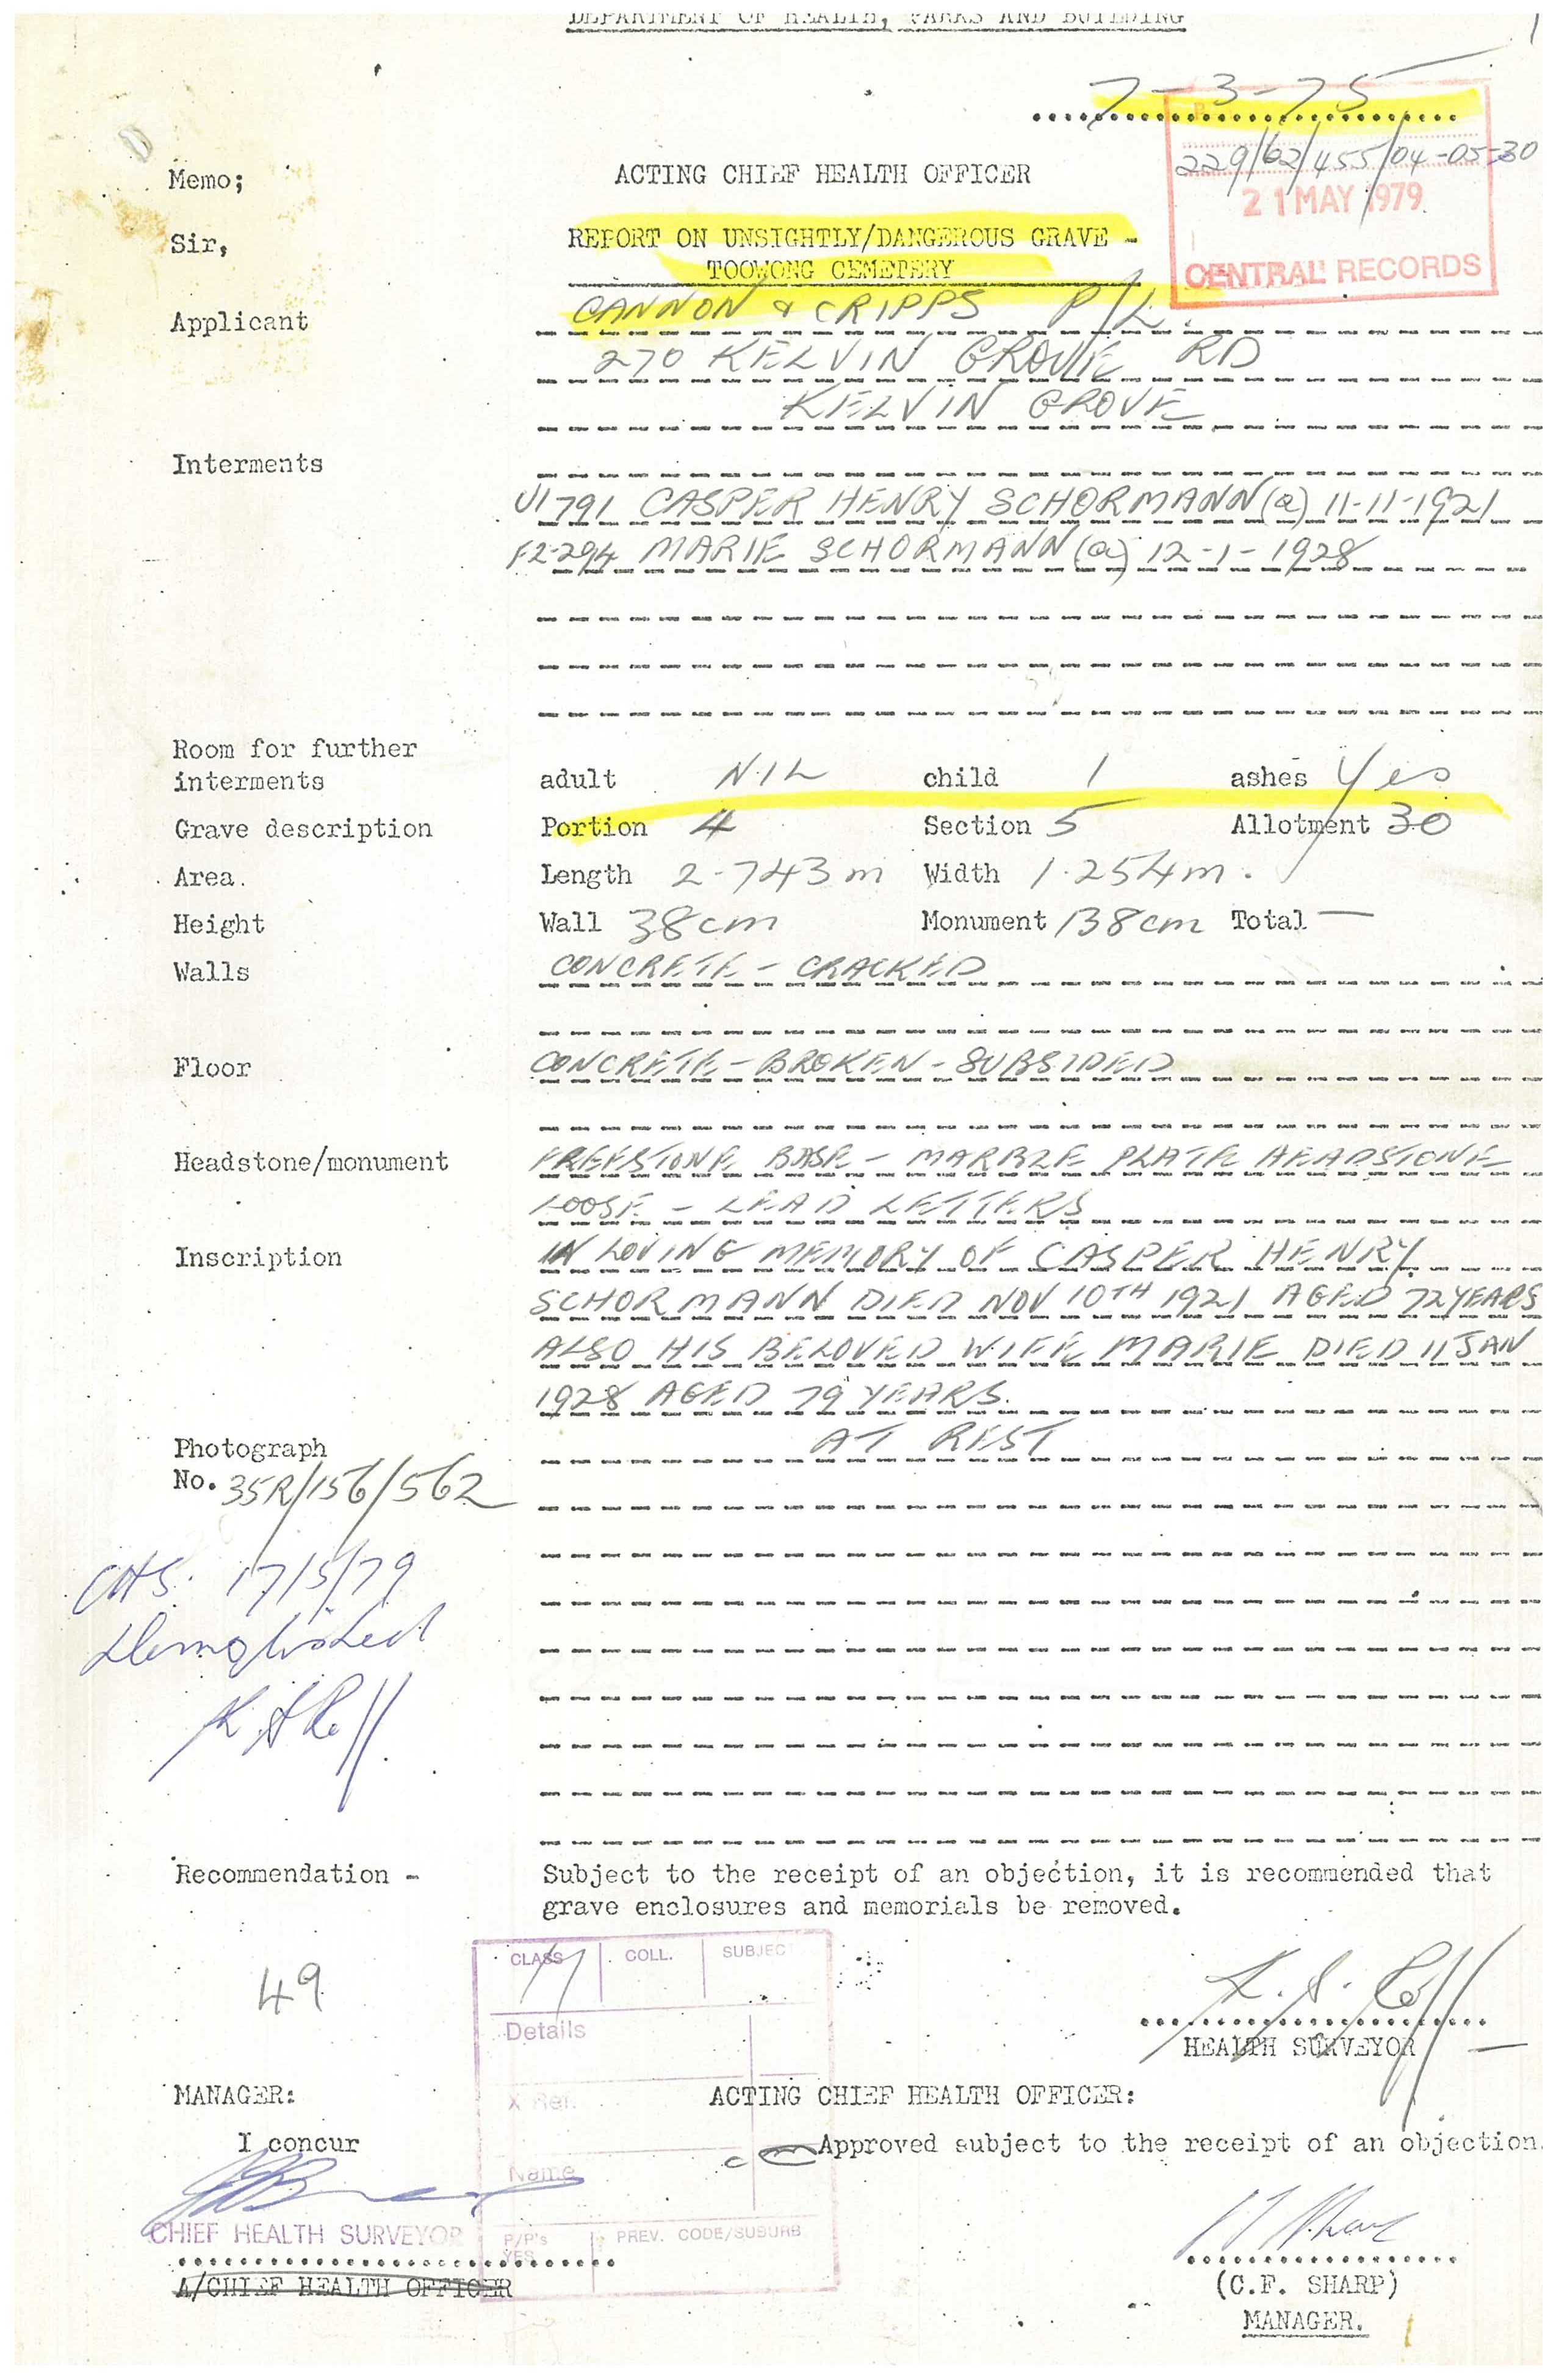 DEPARTMENT OF HEALTH, PARKS AND BUILDING
7-3-75
229/62/455/04-05-30
21 MAY 1979
CENTRAL RECORDS
Memo; ACTING CHIEF HEALTH OFFICER
Sir, REPORT ON UNSIGHTLY/DANGEROUS GRAVE -
TOOWONG CEMETERY
Applicant CANNON & CRIPPS P/L.
270 KELVIN GROVE RD
KELVIN GROVE
Interments
U1791 CASPER HENRY SCHORMANN (a) 11-11-1921
F2-294 MARIE SCHORMANN (a) 12-1-1928
Room for further
interments adult NIL child 1 ashes Yes
Grave description Portion 4 Section 5 Allotment 30
Area. Length 2.743m Width 1.254m.
Height Wall 38cm Monument 138cm Total —
Walls CONCRETE - CRACKED
Floor CONCRETE - BROKEN - SUBSIDED
Headstone/monument FREESTONE BASE - MARBLE PLATE HEADSTONE
LOOSE - LEAD LETTERS
Inscription IN LOVING MEMORY OF CASPER HENRY
SCHORMANN DIED NOV 10TH 1921 AGED 72 YEARS
ALSO HIS BELOVED WIFE MARIE DIED 11 JAN
1928 AGED 79 YEARS.
Photograph AT REST
No. 35R/156/562
CHS: 17/5/79
Demolished
Recommendation - Subject to the receipt of an objection, it is recommended that
grave enclosures and memorials be removed.
CLASS COLL. SUBJEC
49
Details
HEALTH SURVEYOR
MANAGER: X Ref. ACTING CHIEF HEALTH OFFICER:
I concur Approved subject to the receipt of an objection.
Name
CHIEF HEALTH SURVEYOR P/P's PREV. CODE/SUBURB
YES
A/CHIEF HEALTH OFFICER (C.F. SHARP)
MANAGER.